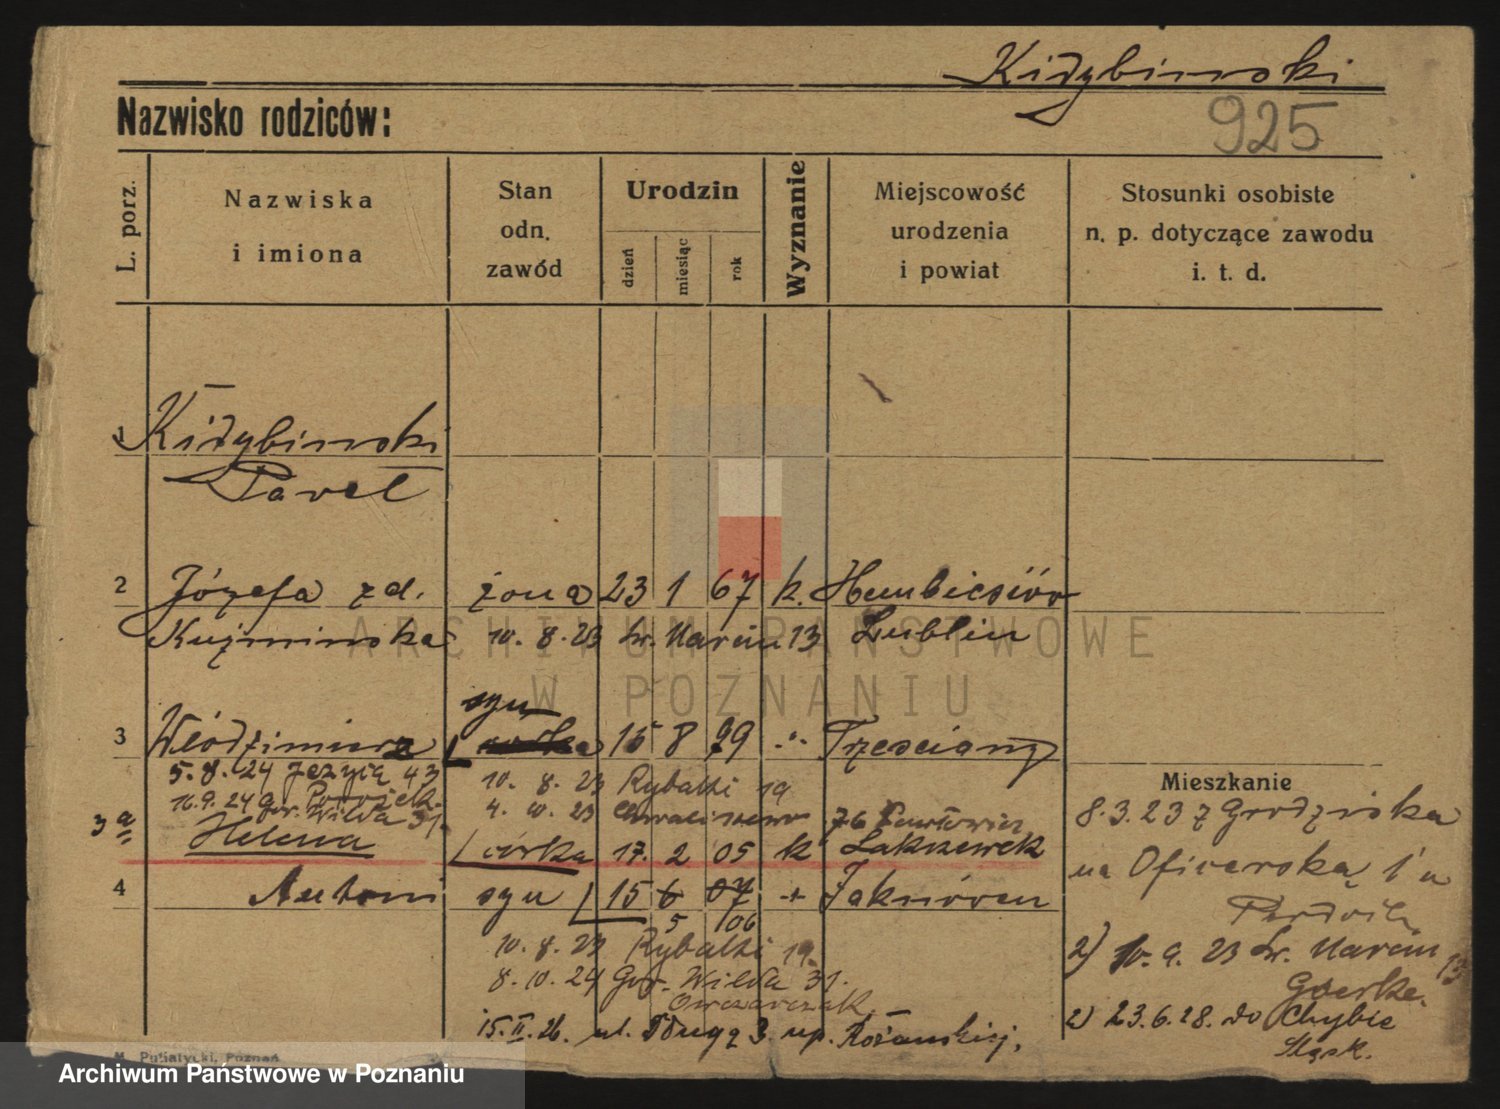 Kidybinski
Nazwisko rodziców:
925
L. porz.
Nazwiska
i imiona
Stan
odn.
zawód
Urodzin
dzień
miesiąc
rok
Wyznanie
Miejscowość
urodzenia
i powiat
Stosunki osobiste
n. p. dotyczące zawodu
i. t. d.
1 Kidybinski
Paweł
2 Józefa zd. żona 23 1 67 k.
10. 8. 23 św. Marcin 13 Lublin
syn
3 Włodzimierz 15 8 99 Trzesciany
5. 8. 24 Jezyce 43
10. 8. 23 Rybaki 19
16.9.24 Wilda 31
4. 10. 23 Chwaliszewo 76
3a Helena córka 17. 2 05 k
4 Antoni syn 15 6 07
5 06
10. 8. 23 Rybaki 19
8. 10. 24 Gór. Wilda 31.
Owczarczak
15. II. 26. ul. Długa 3. up.
Mieszkanie
8. 3. 23 z Grodziska
na
2) 10. 9. 23 św. Marcin 13
2) 23. 6. 28. do Chybie
Śląsk.
M. Putiatycki, Poznań
ARCHIWUM PAŃSTWOWE
W POZNANIU
Archiwum Państwowe w Poznaniu